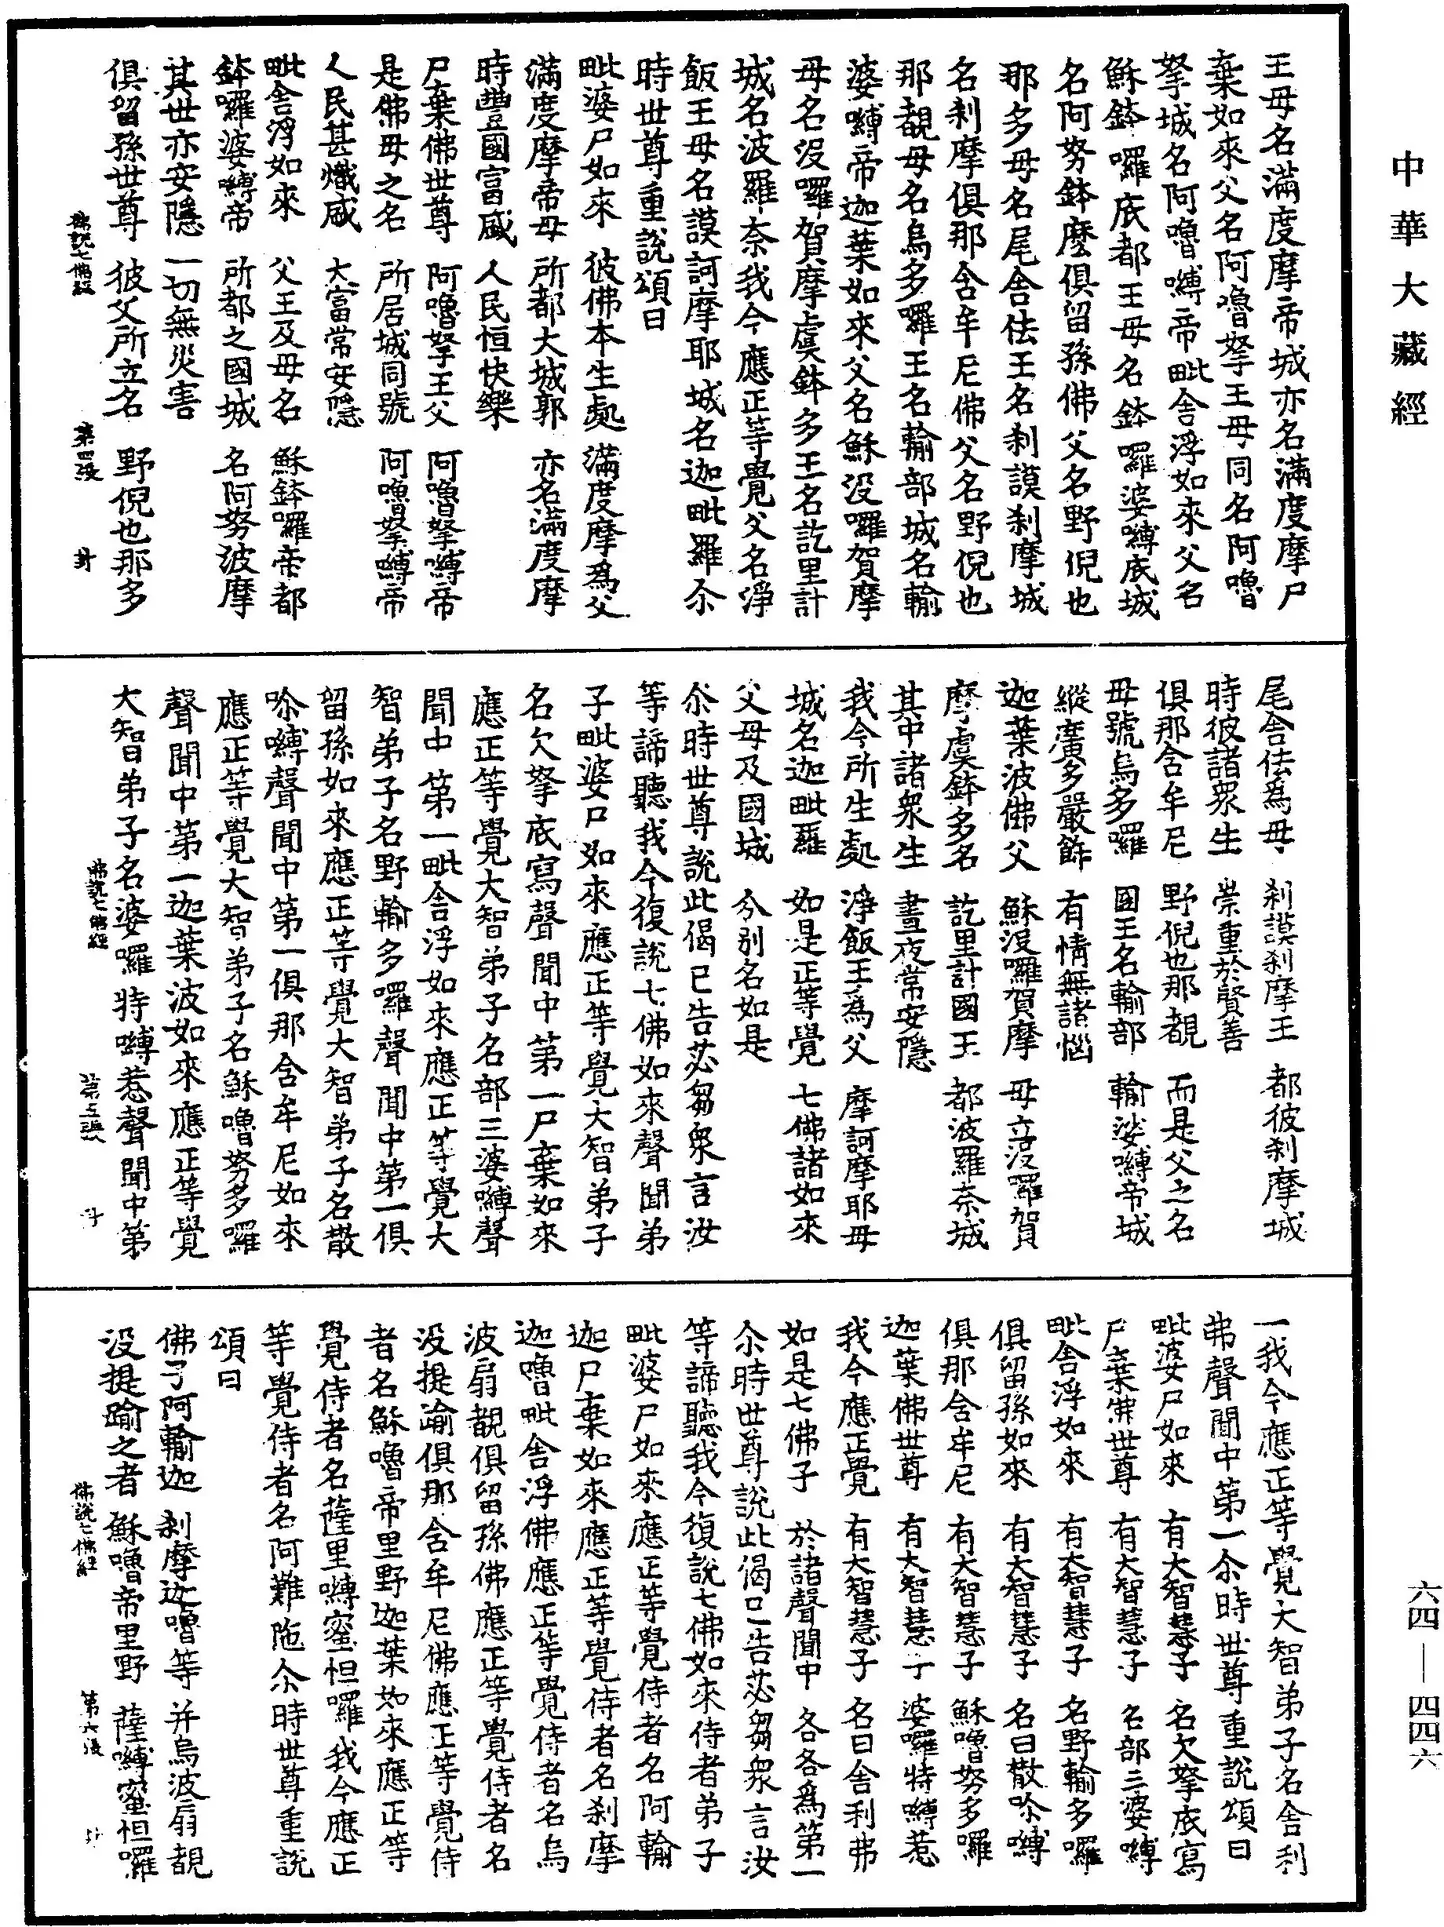 中華大藏經
王母名滿度摩帝城亦名滿度摩尸
棄如來父名阿嚕拏王母同名阿嚕
拏城名阿嚕嚩帝毗舍浮如來父名
穌鉢囉底都王母名鉢囉婆嚩底城
名阿努鉢麼俱留孫佛父名野倪也
那多母名尾舍佉王名剎謨剎摩城
名剎摩俱那含牟尼佛父名野倪也
那覩母名烏多囉王名輸部城名輸
婆嚩帝迦葉如來父名穌沒囉賀摩
母名沒囉賀摩虞鉢多王名訖里計
城名波羅奈我今應正等覺父名淨
飯王母名謨訶摩耶城名迦毗羅尒
時世尊重說頌曰
毗婆尸如來 彼佛本生處 滿度摩為父
滿度摩帝母 所都大城郭 亦名滿度摩
時豐國富盛 人民恒快樂
尸棄佛世尊 阿嚕拏王父 阿嚕拏嚩帝
是佛母之名 所居城同號 阿嚕拏嚩帝
人民甚熾盛 大富常安隱
毗舍浮如來 父王及母名 穌鉢囉帝都
鉢囉婆嚩帝 所都之國城 名阿努波摩
其世亦安隱 一切無災害
俱留孫世尊 彼父所立名 野倪也那多
佛說七佛經 第四張
尾舍佉為母 剎謨剎摩王 都彼剎摩城
時彼諸眾生 崇重於賢善
俱那含牟尼 野倪也那覩 而是父之名
母號烏多囉 國王名輸部 輸娑嚩帝城
縱廣多嚴飾 有情無諸惱
迦葉波佛父 穌沒囉賀摩 母立沒囉賀
摩虞鉢多名 訖里計國王 都波羅奈城
其中諸眾生 晝夜常安隱
我今所生處 淨飯王為父 摩訶摩耶母
城名迦毗羅 如是正等覺 七佛諸如來
父母及國城 分別名如是
尒時世尊說此偈已告苾芻眾言汝
等諦聽我今復說七佛如來聲聞弟
子毗婆尸如來應正等覺大智弟子
名欠拏底寫聲聞中第一尸棄如來
應正等覺大智弟子名部三婆嚩聲
聞中第一毗舍浮如來應正等覺大
智弟子名野輸多囉聲聞中第一俱
留孫如來應正等覺大智弟子名散
吤嚩聲聞中第一俱那含牟尼如來
應正等覺大智弟子名穌嚕努多囉
聲聞中第一迦葉波如來應正等覺
大智弟子名婆囉特嚩惹聲聞中第
佛說七佛經 第五張
一我今應正等覺大智弟子名舍利
弗聲聞中第一尒時世尊重說頌曰
毗婆尸如來 有大智慧子 名欠拏底寫
尸棄佛世尊 有大智慧子 名部三婆嚩
毗舍浮如來 有大智慧子 名野輸多囉
俱留孫如來 有大智慧子 名曰散吤嚩
俱那含牟尼 有大智慧子 穌嚕努多囉
迦葉佛世尊 有大智慧子 婆囉特嚩惹
我今應正覺 有大智慧子 名曰舍利弗
如是七佛子 於諸聲聞中 各各為第一
尒時世尊說此偈已告苾芻眾言汝
等諦聽我今復說七佛如來侍者弟子
毗婆尸如來應正等覺侍者名阿輸
迦尸棄如來應正等覺侍者名剎摩
迦嚕毗舍浮佛應正等覺侍者名烏
波扇覩俱留孫佛應正等覺侍者名
沒提踰俱那含牟尼佛應正等覺侍
者名穌嚕帝里野迦葉如來應正等
覺侍者名薩里嚩蜜怛囉我今應正
等覺侍者名阿難陁尒時世尊重說
頌曰
佛子阿輸迦 剎摩迦嚕等 并烏波扇覩
沒提踰之者 穌嚕帝里野 薩嚩蜜怛囉
佛說七佛經 第六張
六四—四四六